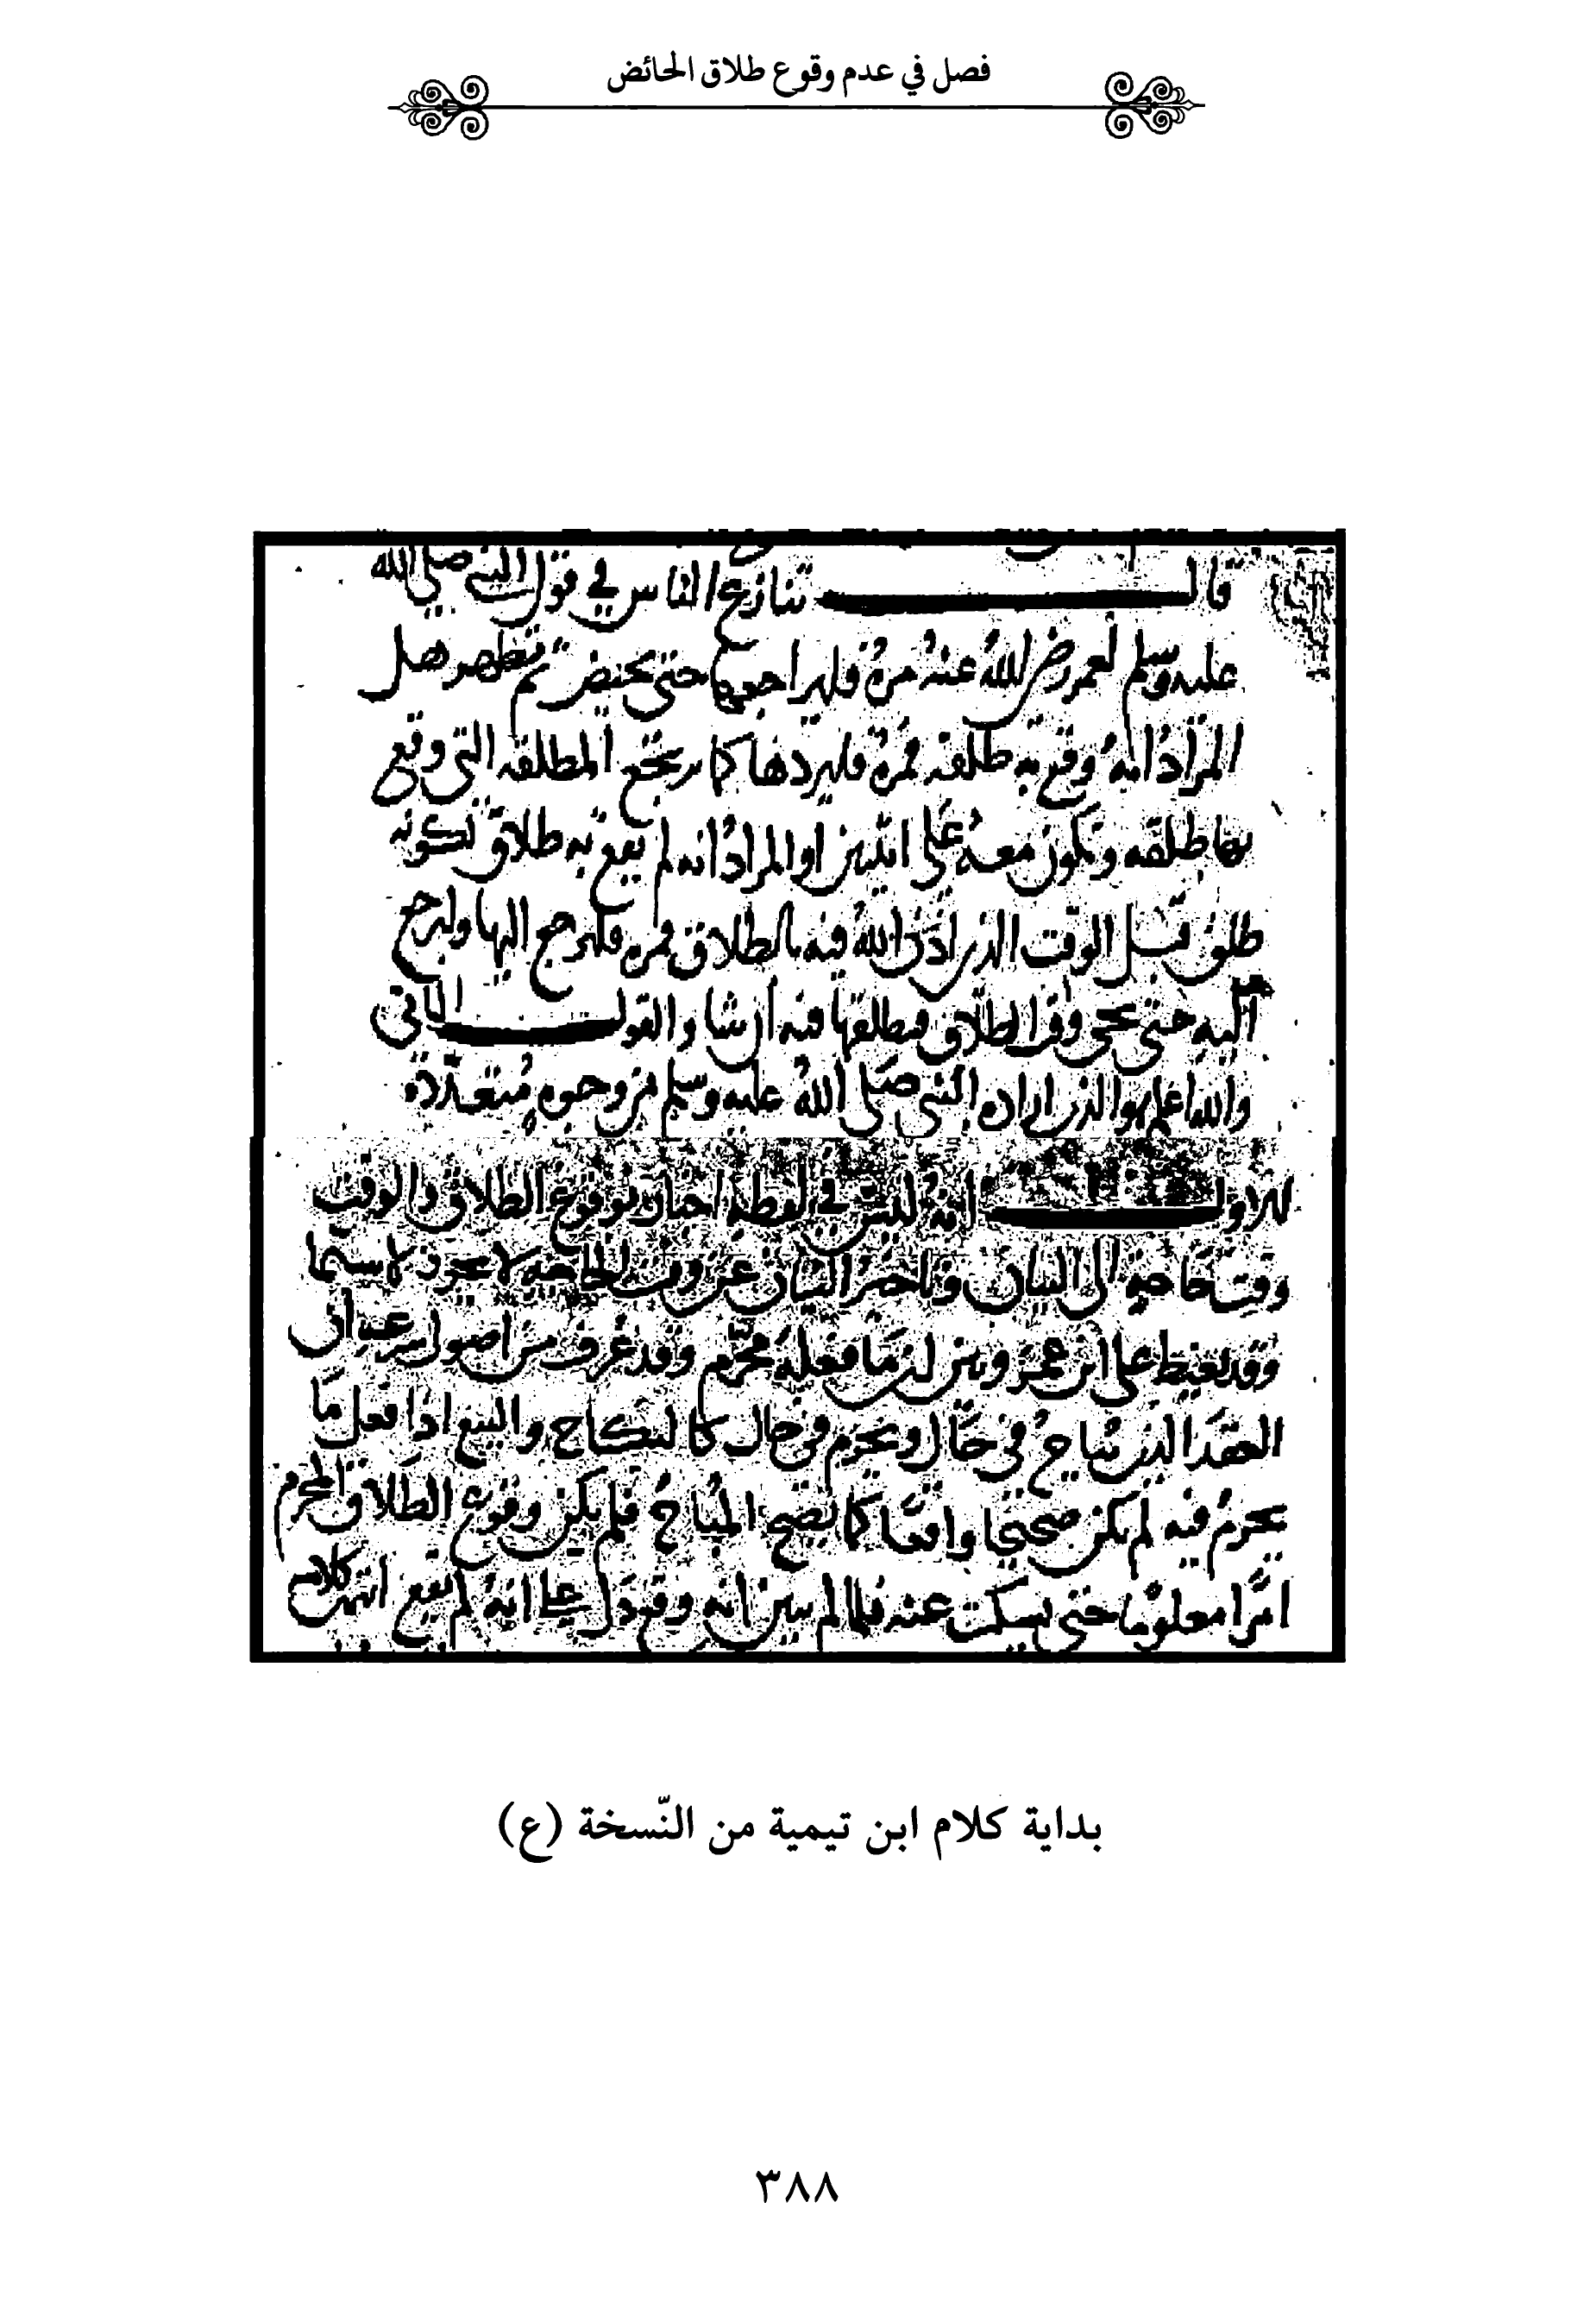 فصل في عدم وقوع طلاق الحائض
قال تنازع الناس في قول النبي صلى الله
عليه وسلم لعمر رضي الله عنه مره فليراجعها حتى تحيض ثم تطهر هل
المراد انه وقع به طلقه فمره فليردها كما يرتجع المطلقه التي وقع
بها طلقه وتكون معه على اثنتين او المراد انه لم يقع به طلاق لكونه
طلق قبل الوقت الذي اذن الله فيه بالطلاق فمره فليرجع اليها ولترجع
اليه حتى يجي وقت الطلاق فيطلقها فيه ان شا والقول الثاني
والله اعلم هو الذي اراده النبي صلى الله عليه وسلم من وجوه متعددة
الاول انه ليس في لفظه اخبار بوقوع الطلاق والوقت
وقت حاجة الى البيان وتاخير البيان عن وقت الحاجه لا يجوز لا سيما
وقد تغيظ على ابن عمر وبين ان ما فعله محرم وقد عرف من اصول شرعه ان
العقد الذي يباح في حال ويحرم في حال كالنكاح والبيع اذا فعل ما
يحرم فيه لم يكن صحيحا واقعا كما يصح المباح فلم يكن وقوع الطلاق المحرم
امرا معلوما حتى يسكت عنه فلما لم يبين انه وقع دل على انه لم يقع انتهى كلامه
بداية كلام ابن تيمية من النّسخة (ع)
٣٨٨